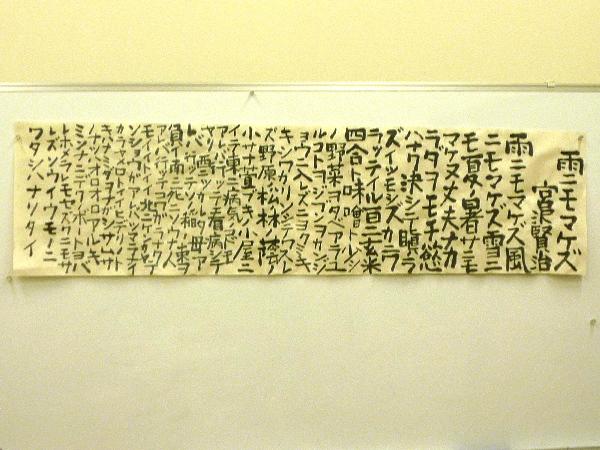 雨ニモマケズ
宮沢賢治
雨ニモマケズ風
ニモマケズ雪ニ
モ夏ノ暑サニモ
マケヌ丈夫ナカ
ラダヲモチ慾
ハナク決シテ瞋ラ
ズイツモシズカニワ
ラッテイル一日ニ玄米
四合ト味噌ト少シ
ノ野菜ヲタベアラユ
ルコトヲジブンヲカンジ
ョウニ入レズニヨクミキ
キシワカリソシテワスレ
ズ野原ノ松ノ林ノ蔭ノ
小サナ萱ブキノ小屋ニ
イテ東ニ病気ノコドモ
アレバ行ッテ看病シテ
ヤリ西ニツカレタ母ア
レバ行ッテソノ稲ノ束ヲ
負ヒ南ニ死ニソウナ人
アレバ行ッテコワガラナクテ
モイイトイイ北ニケンカヤ
ソショウガアレバツマラナイ
カラヤメロトイイヒデリノト
キハナミダヲナガシサムサ
ノナツハオロオロアルキ
ミンナニデクノボートヨバ
レホメラレモセズクニモサ
レズソウイウモノニ
ワタシハナリタイ